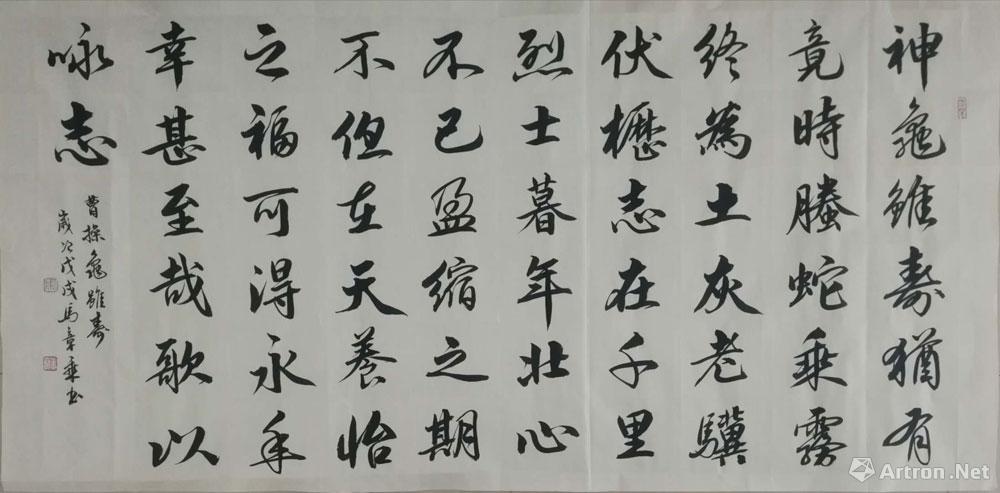 神龜雖壽猶有
竟時螣蛇乘霧
終為土灰老驥
伏櫪志在千里
烈士暮年壯心
不已盈縮之期
不但在天養怡
之福可得永年
幸甚至哉歌以
咏志
曹操龜雖壽
歲次戊戌馬章乘书
Artron.Net